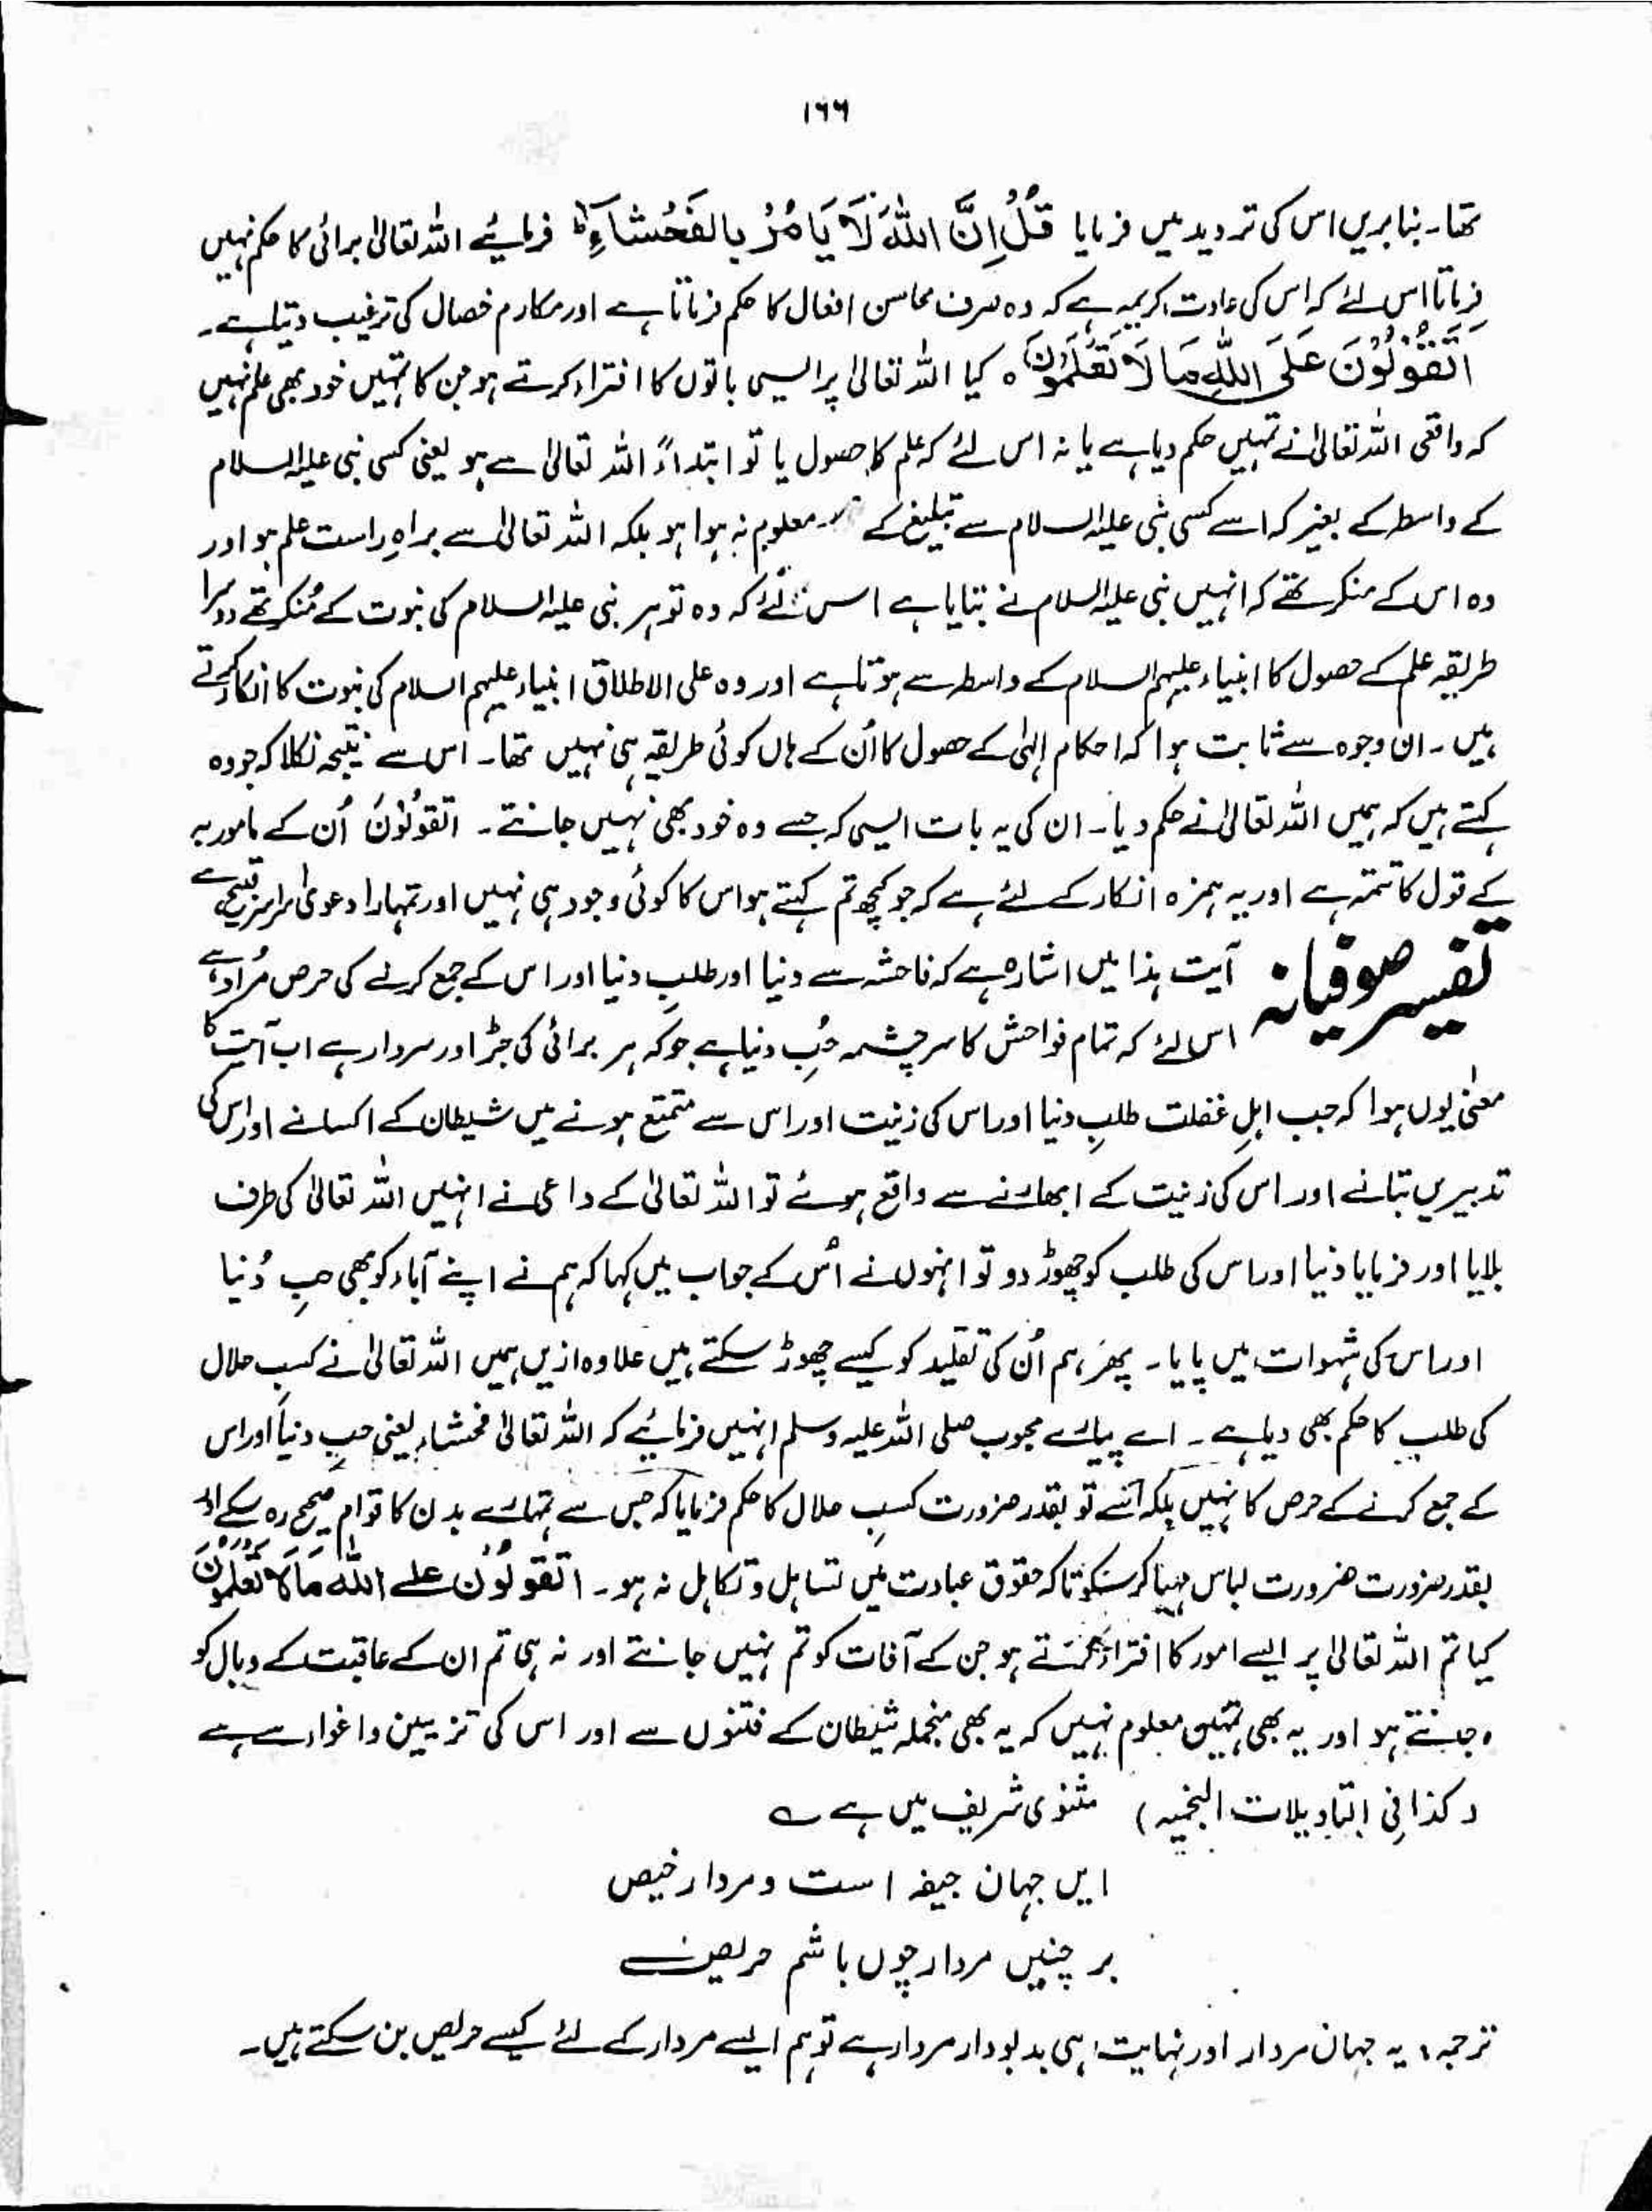 ۱۶۶
تھا۔ بنا بریں اس کی تردید میں فرمایا قُلْ اِنَّ اللّٰہَ لَا یَاْمُرُ بِالْفَحْشَآءِ ؕ فرمائیے اللہ تعالیٰ برائی کا حکم نہیں
فرماتا اس لئے کہ اس کی عادت کریمہ ہے کہ وہ صرف محاسن افعال کا حکم فرماتا ہے اور مکارم خصال کی ترغیب دیتا ہے۔
اَتَقُوْلُوْنَ عَلَی اللّٰہِ مَا لَا تَعْلَمُوْنَ ہ کیا اللہ تعالیٰ پر ایسی باتوں کا افتراء کرتے ہو جن کا تمہیں خود بھی علم نہیں
کہ واقعی اللہ تعالیٰ نے تمہیں حکم دیا ہے یا نہ اس لئے کہ علم کا حصول یا تو ابتداءً اللہ تعالیٰ سے ہو یعنی کسی نبی علیہ السلام
کے واسطہ کے بغیر کہ اسے کسی نبی علیہ السلام سے تبلیغ کے معلوم نہ ہوا ہو بلکہ اللہ تعالیٰ سے براہِ راست علم ہو اور
وہ اس کے منکر تھے کہ انہیں نبی علیہ السلام نے بتایا ہے اس لئے کہ وہ تو ہر نبی علیہ السلام کی نبوت کے مُنکر تھے دوسرا
طریقہ علم کے حصول کا انبیاء علیہم السلام کے واسطہ سے ہوتا ہے اور وہ علی الاطلاق انبیاء علیہم السلام کی نبوت کا انکار کرتے
ہیں۔ ان وجوہ سے ثابت ہوا کہ احکام الٰہی کے حصول کا اُن کے ہاں کوئی طریقہ ہی نہیں تھا۔ اس سے نتیجہ نکلا کہ جو وہ
کہتے ہیں کہ ہمیں اللہ تعالیٰ نے حکم دیا۔ ان کی یہ بات ایسی کہ جسے وہ خود بھی نہیں جانتے۔ اتقُولُوْنَ اُن کے مامور بہ
کے قول کا تتمہ ہے اور یہ ہمزہ انکار کے لئے ہے کہ جو کچھ تم کہتے ہو اس کا کوئی وجود ہی نہیں اور تمہارا دعویٰ سراسر قبیح ہے
تفسیر صوفیانہ آیت ہذا میں اشارہ ہے کہ فاحشہ سے دنیا اور طلبِ دنیا اور اس کے جمع کرنے کی حرص مُراد ہے
اس لئے کہ تمام فواحش کا سرچشمہ حُبِ دنیا ہے جو کہ ہر برائی کی جڑ اور سردار ہے اب آیت کا
معنیٰ یوں ہوا کہ جب اہلِ غفلت طلبِ دنیا اور اس کی زینت اور اس سے متمتع ہونے میں شیطان کے اکسانے اور اس کی
تدبیریں بتانے اور اس کی زینت کے ابھارنے سے واقع ہوئے تو اللہ تعالیٰ کے داعی نے انہیں اللہ تعالیٰ کی طرف
بلایا اور فرمایا دنیا اور اس کی طلب کو چھوڑ دو تو انہوں نے اُس کے جواب میں کہا کہ ہم نے اپنے آباء کو بھی حبِ دُنیا
اور اس کی شہوات میں پایا۔ پھر ہم اُن کی تقلید کو کیسے چھوڑ سکتے ہیں علاوہ ازیں ہمیں اللہ تعالیٰ نے کسبِ حلال
کی طلب کا حکم بھی دیا ہے۔ اے پیارے محبوب صلی اللہ علیہ وسلم انہیں فرمائیے کہ اللہ تعالیٰ فحشاء یعنی حبِ دنیا اور اس
کے جمع کرنے کے حرص کا نہیں بلکہ اُسنے تو بقدر ضرورت کسبِ حلال کا حکم فرمایا کہ جس سے تمہارے بدن کا قوام صحیح رہ سکے اور
بقدر ضرورت ضرورت لباس مہیا کر سکو تاکہ حقوق عبادت میں تساہل و تکاہل نہ ہو۔ اتقولُوْن علے اللّٰہ مَا لَا تَعْلَمُوْنَ
کیا تم اللہ تعالیٰ پر ایسے امور کا افتراء کرتے ہو جن کے آفات کو تم نہیں جانتے اور نہ ہی تم ان کے عاقبت کے وبال کو
جانتے ہو اور یہ بھی تمہیں معلوم نہیں کہ یہ بھی منجملہ شیطان کے فتنوں سے اور اس کی تزیین و اغواء سے ہے
(کذا فی التاویلات النجمیہ) مثنوی شریف میں ہے ؎
ایں جہان جیفہ است و مردار خیص
بر چنیں مردار چوں باشم حریص
ترجمہ: یہ جہان مردار اور نہایت ہی بدبودار مردار ہے تو ہم ایسے مردار کے لئے کیسے حریص بن سکتے ہیں۔